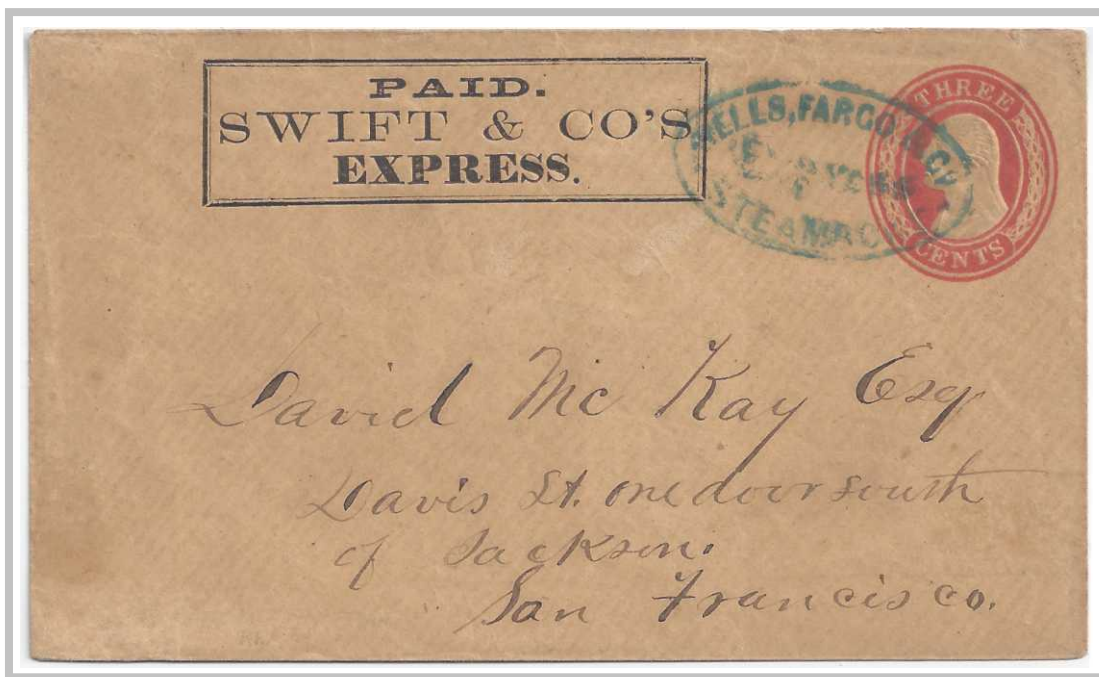 PAID.
SWIFT & CO'S
EXPRESS.
WELLS, FARGO & CO
STEAMBOAT
THREE
CENTS
David Mc Kay Esq
Davis St. one door south
of Jackson.
San Francisco.